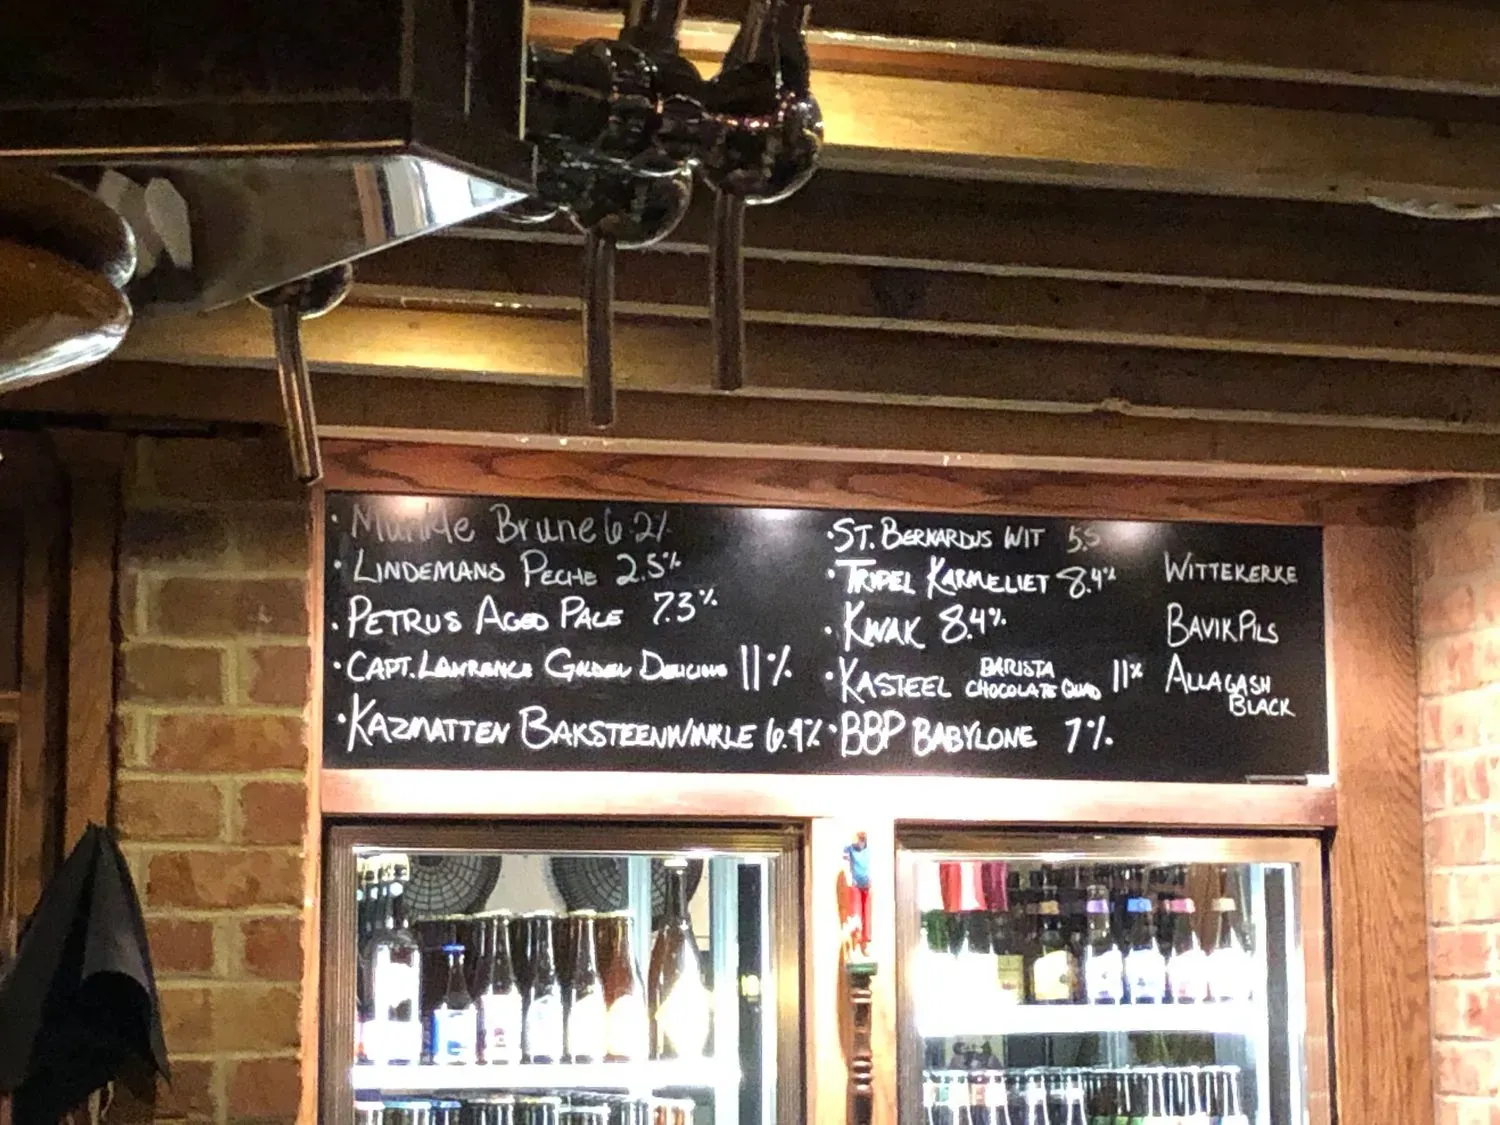 · Munkle Brune 6.2%
· LINDEMANS PECHE 2.5%
· PETRUS AGED PALE 7.3%
· CAPT. LAWRENCE GOLDEN DELICIOUS 11%
· KAZMATTEN BAKSTEENWINKLE 6.4%
· ST. BERNARDUS WIT 5.5
· TRIPEL KARMELIET 8.4%
· KWAK 8.4%
· KASTEEL BARISTA
CHOCOLATE QUAD 11%
· BBP BABYLONE 7%
WITTEKERKE
BAVIK PILS
ALLAGASH
BLACK